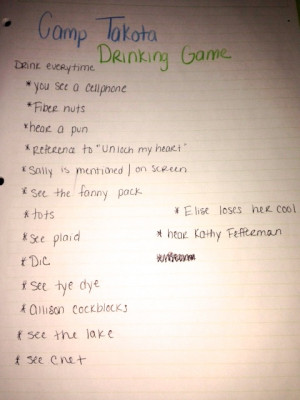 Camp Takota
Drinking Game
Drink everytime
* you see a cellphone
* Fiber nuts
* hear a pun
* Reference to "Unlock my heart"
* Sally is mentioned / on screen
* see the fanny pack
* tots
* Elise loses her cool
* see plaid
* hear Kathy Fefferman
* Dic
* see tye dye
* allison cockblocks
* see the lake
* see Chet